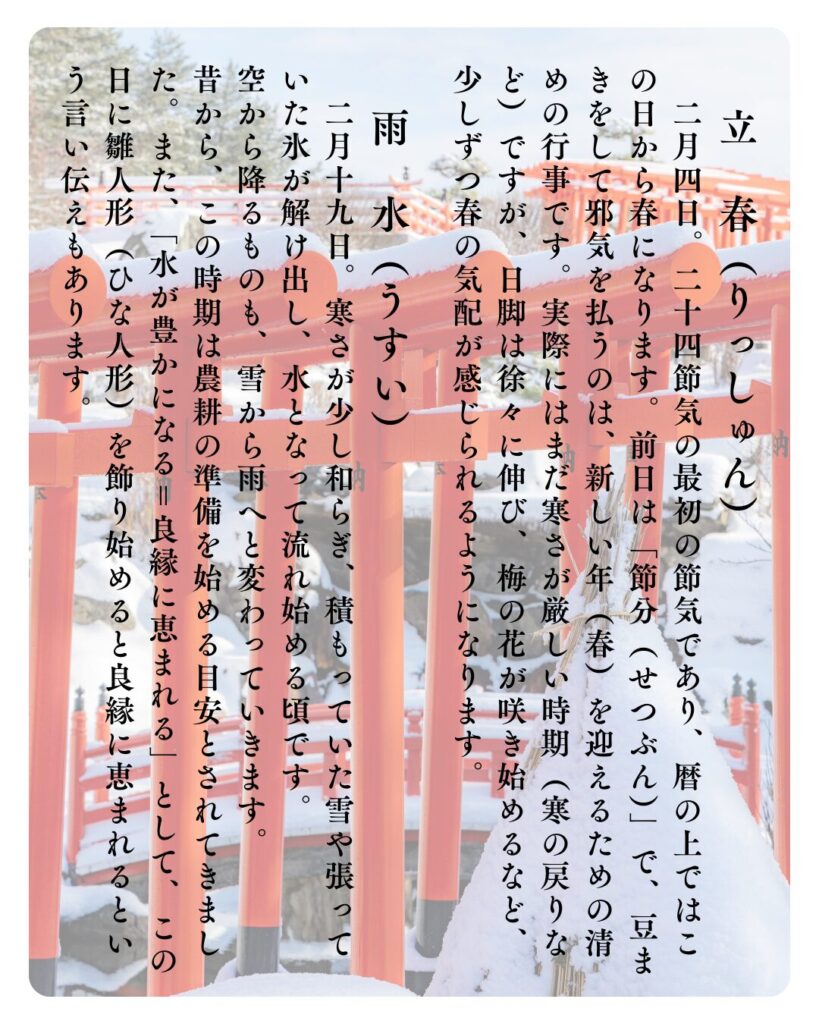 立　春(りっしゅん)
　二月四日。二十四節気の最初の節気であり、暦の上ではこ
の日から春になります。前日は「節分（せつぶん）」で、豆ま
きをして邪気を払うのは、新しい年（春）を迎えるための清
めの行事です。実際にはまだ寒さが厳しい時期（寒の戻りな
ど）ですが、日脚は徐々に伸び、梅の花が咲き始めるなど、
少しずつ春の気配が感じられるようになります。
雨　水(うすい)
　二月十九日。寒さが少し和らぎ、積もっていた雪や張って
いた氷が解け出し、水となって流れ始める頃です。
空から降るものも、雪から雨へと変わっていきます。
昔から、この時期は農耕の準備を始める目安とされてきまし
た。また、「水が豊かになる＝良縁に恵まれる」として、この
日に雛人形（ひな人形）を飾り始めると良縁に恵まれるとい
う言い伝えもあります。